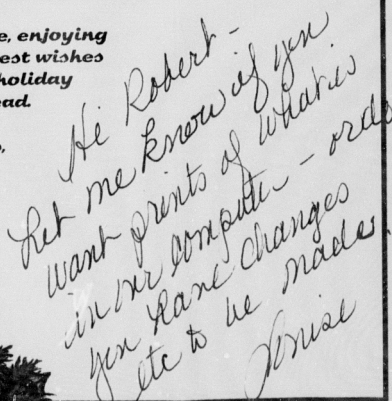 e, enjoying
est wishes
holiday
ead.
,
Hi Robert -
Let me know if you
want prints of what is
in our computer - orde
you have changes
etc to be made.
Denise